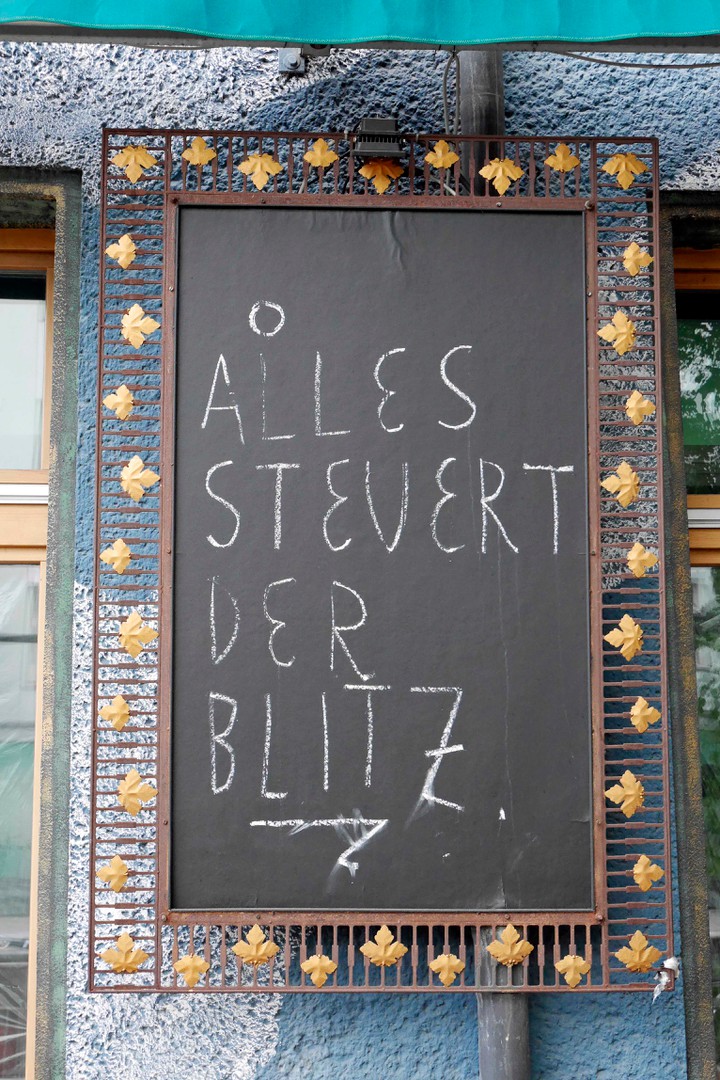 ALLES
STEUERT
DER
BLITZ.